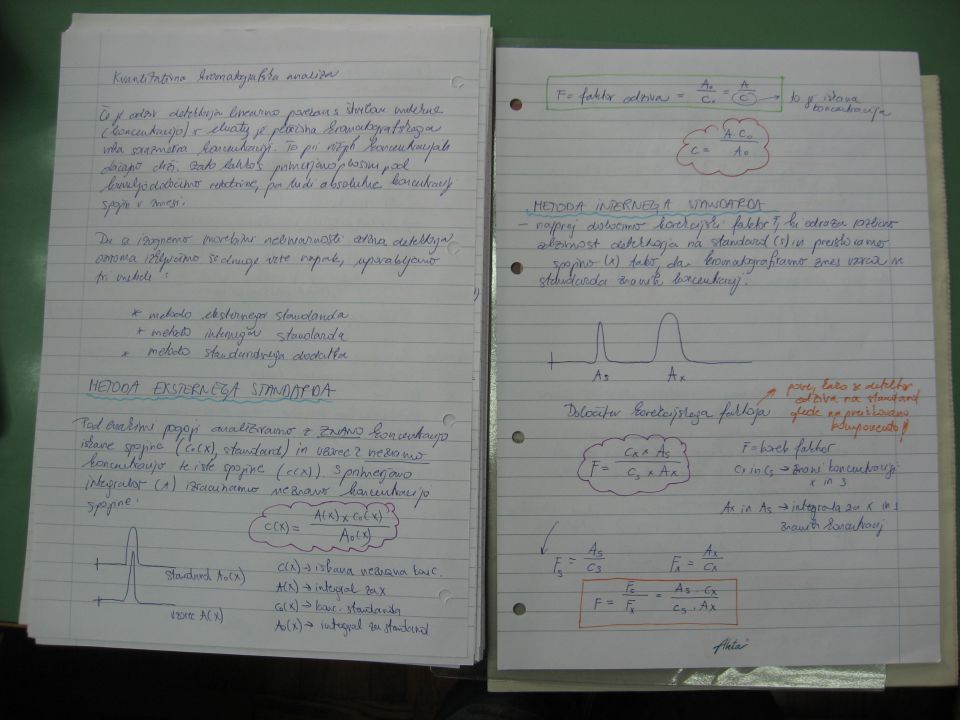 Kvantitativna kromatografska analiza
Če je odziv detektorja linearno povezan s številom molekul
(koncentracijo) v eluatu, je površina kromatografskega
vrha sorazmerna koncentraciji. To pri nizkih koncentracijah
običajno drži. Zato lahko s primerjavo površin pod
krivuljo določimo relativne, pa tudi absolutne koncentracije
spojin v zmesi.
Da se izognemo morebitni nelinearnosti odziva detektorja
oziroma izključimo še druge vrste napak, uporabljamo
tri metode:
* metodo eksternega standarda
* metodo internega standarda
* metodo standardnega dodatka
METODA EKSTERNEGA STANDARDA
Pod enakimi pogoji analiziramo z ZNANO koncentracijo
iskane spojine (c₀(x), standard) in vzorec z neznano
koncentracijo te iste spojine (c(x)). S primerjavo
integralov (A) izračunamo neznano koncentracijo
spojine:
c(x) = A(x) × c₀(x) / A₀(x)
standard A₀(x)
vzorec A(x)
c(x) → iskana neznana konc.
A(x) → integral za x
c₀(x) → konc. standarda
A₀(x) → integral za standard
F = faktor odziva = A₀/C₀ = A/C → to je iskana
koncentracija
C = A·C₀ / A₀
METODA INTERNEGA STANDARDA
- najprej določimo korekcijski faktor F, ki odraža različno
občutljivost detektorja na standard (s) in preiskovano
spojino (x) tako, da kromatografiramo zmes vzorca in
standarda znanih koncentracij.
As Ax
Določitev korekcijskega faktorja
pove, kako se detektor
odziva na standard
glede na preiskovano
komponento!
F = Cx × As / Cs × Ax
F = korek faktor
Cx in Cs → znani koncentraciji
x in s
Ax in As → integrala za x in s
znanih koncentracij
Fs = As/Cs
Fx = Ax/Cx
F = Fs/Fx = As·Cx / Cs·Ax